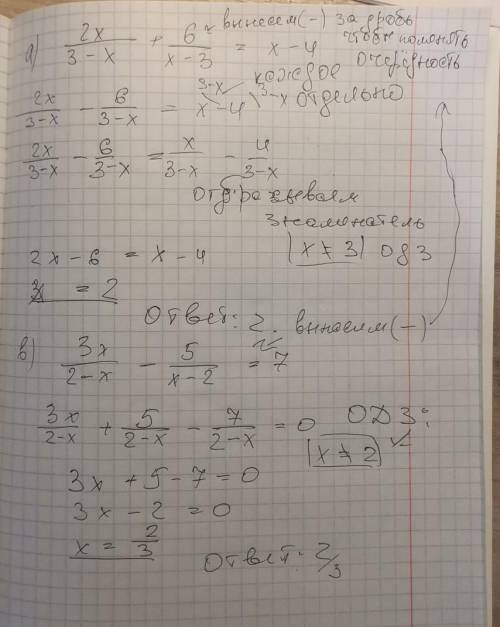 а) 2x/(3-x) + 6/(x-3) = x-4 вынесем (-) за дробь чтобы поменять очерёдность
2x/(3-x) - 6/(3-x) = x-4 3-x 3-x каждое отдельно
2x/(3-x) - 6/(3-x) = x/(3-x) - 4/(3-x)
знаменатель
2x-6 = x-4 x≠3 ОДЗ
x = 2
Ответ: 2. вынесем (-)
в) 3x/(2-x) - 5/(x-2) = 7
3x/(2-x) + 5/(2-x) - 7/(2-x) = 0 ОДЗ:
x≠2
3x+5-7=0
3x-2=0
x = 2/3
Ответ: 2/3